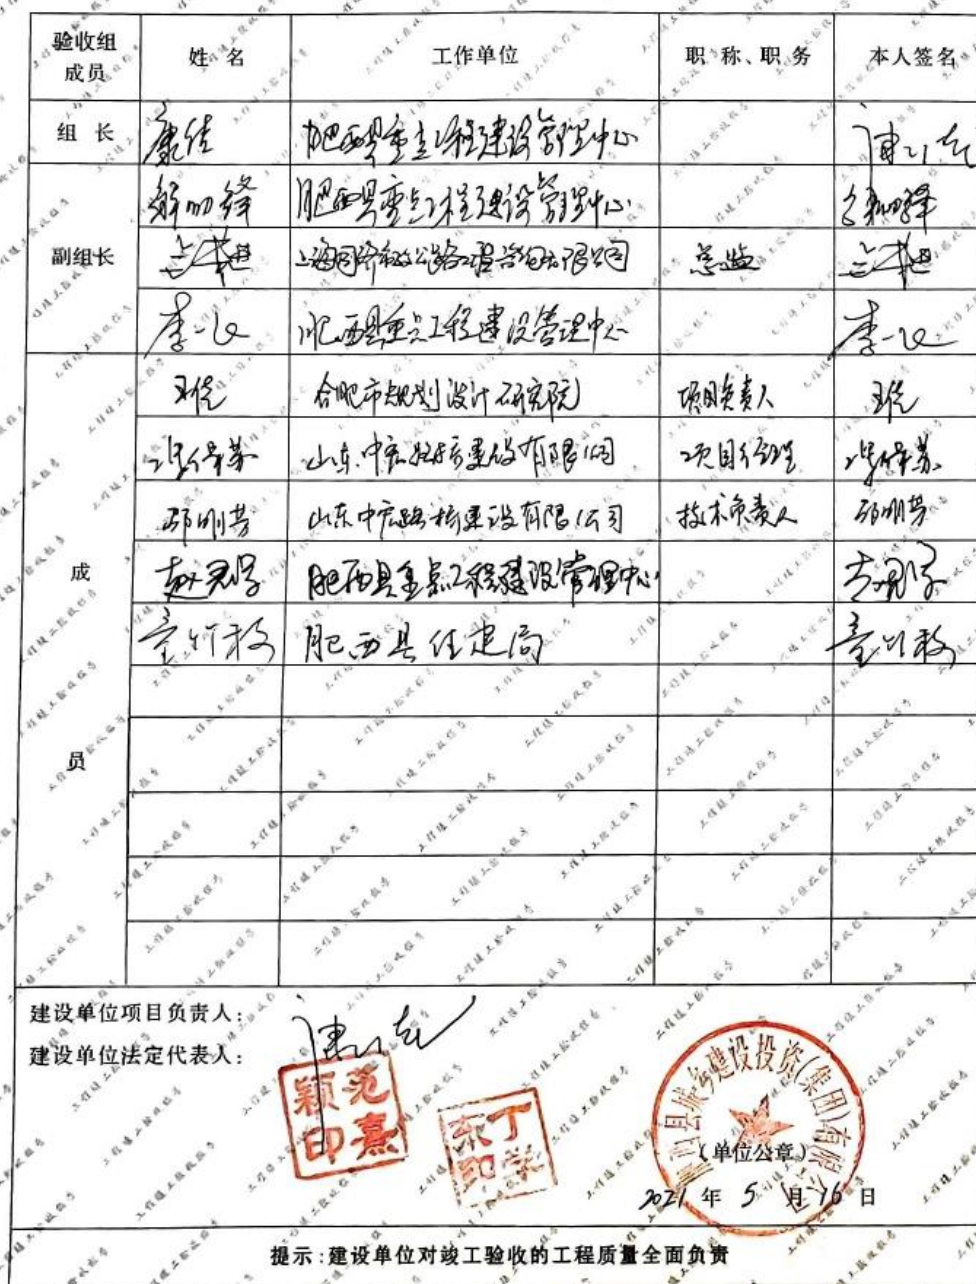 验收组成员 姓 名 工作单位 职 称、职务 本人签名
组 长 康佳 肥西县重点工程建设管理中心
副组长 解明锋 肥西县重点工程建设管理中心
上海同济市政公路工程咨询有限公司 总监
李一飞 肥西县重点工程建设管理中心 李一飞
成员 合肥市规划设计研究院 项目负责人
山东中宏路桥建设有限公司 项目经理
邵明芳 山东中宏路桥建设有限公司 技术负责人 邵明芳
赵君学 肥西县重点工程建设管理中心
童竹敏 肥西县住建局
建设单位项目负责人:
建设单位法定代表人:
范熹颖印
丁学东印
肥西县城乡建设投资(集团)有限公司
(单位公章)
2021 年 5 月 16 日
提示:建设单位对竣工验收的工程质量全面负责
工程竣工验收报告